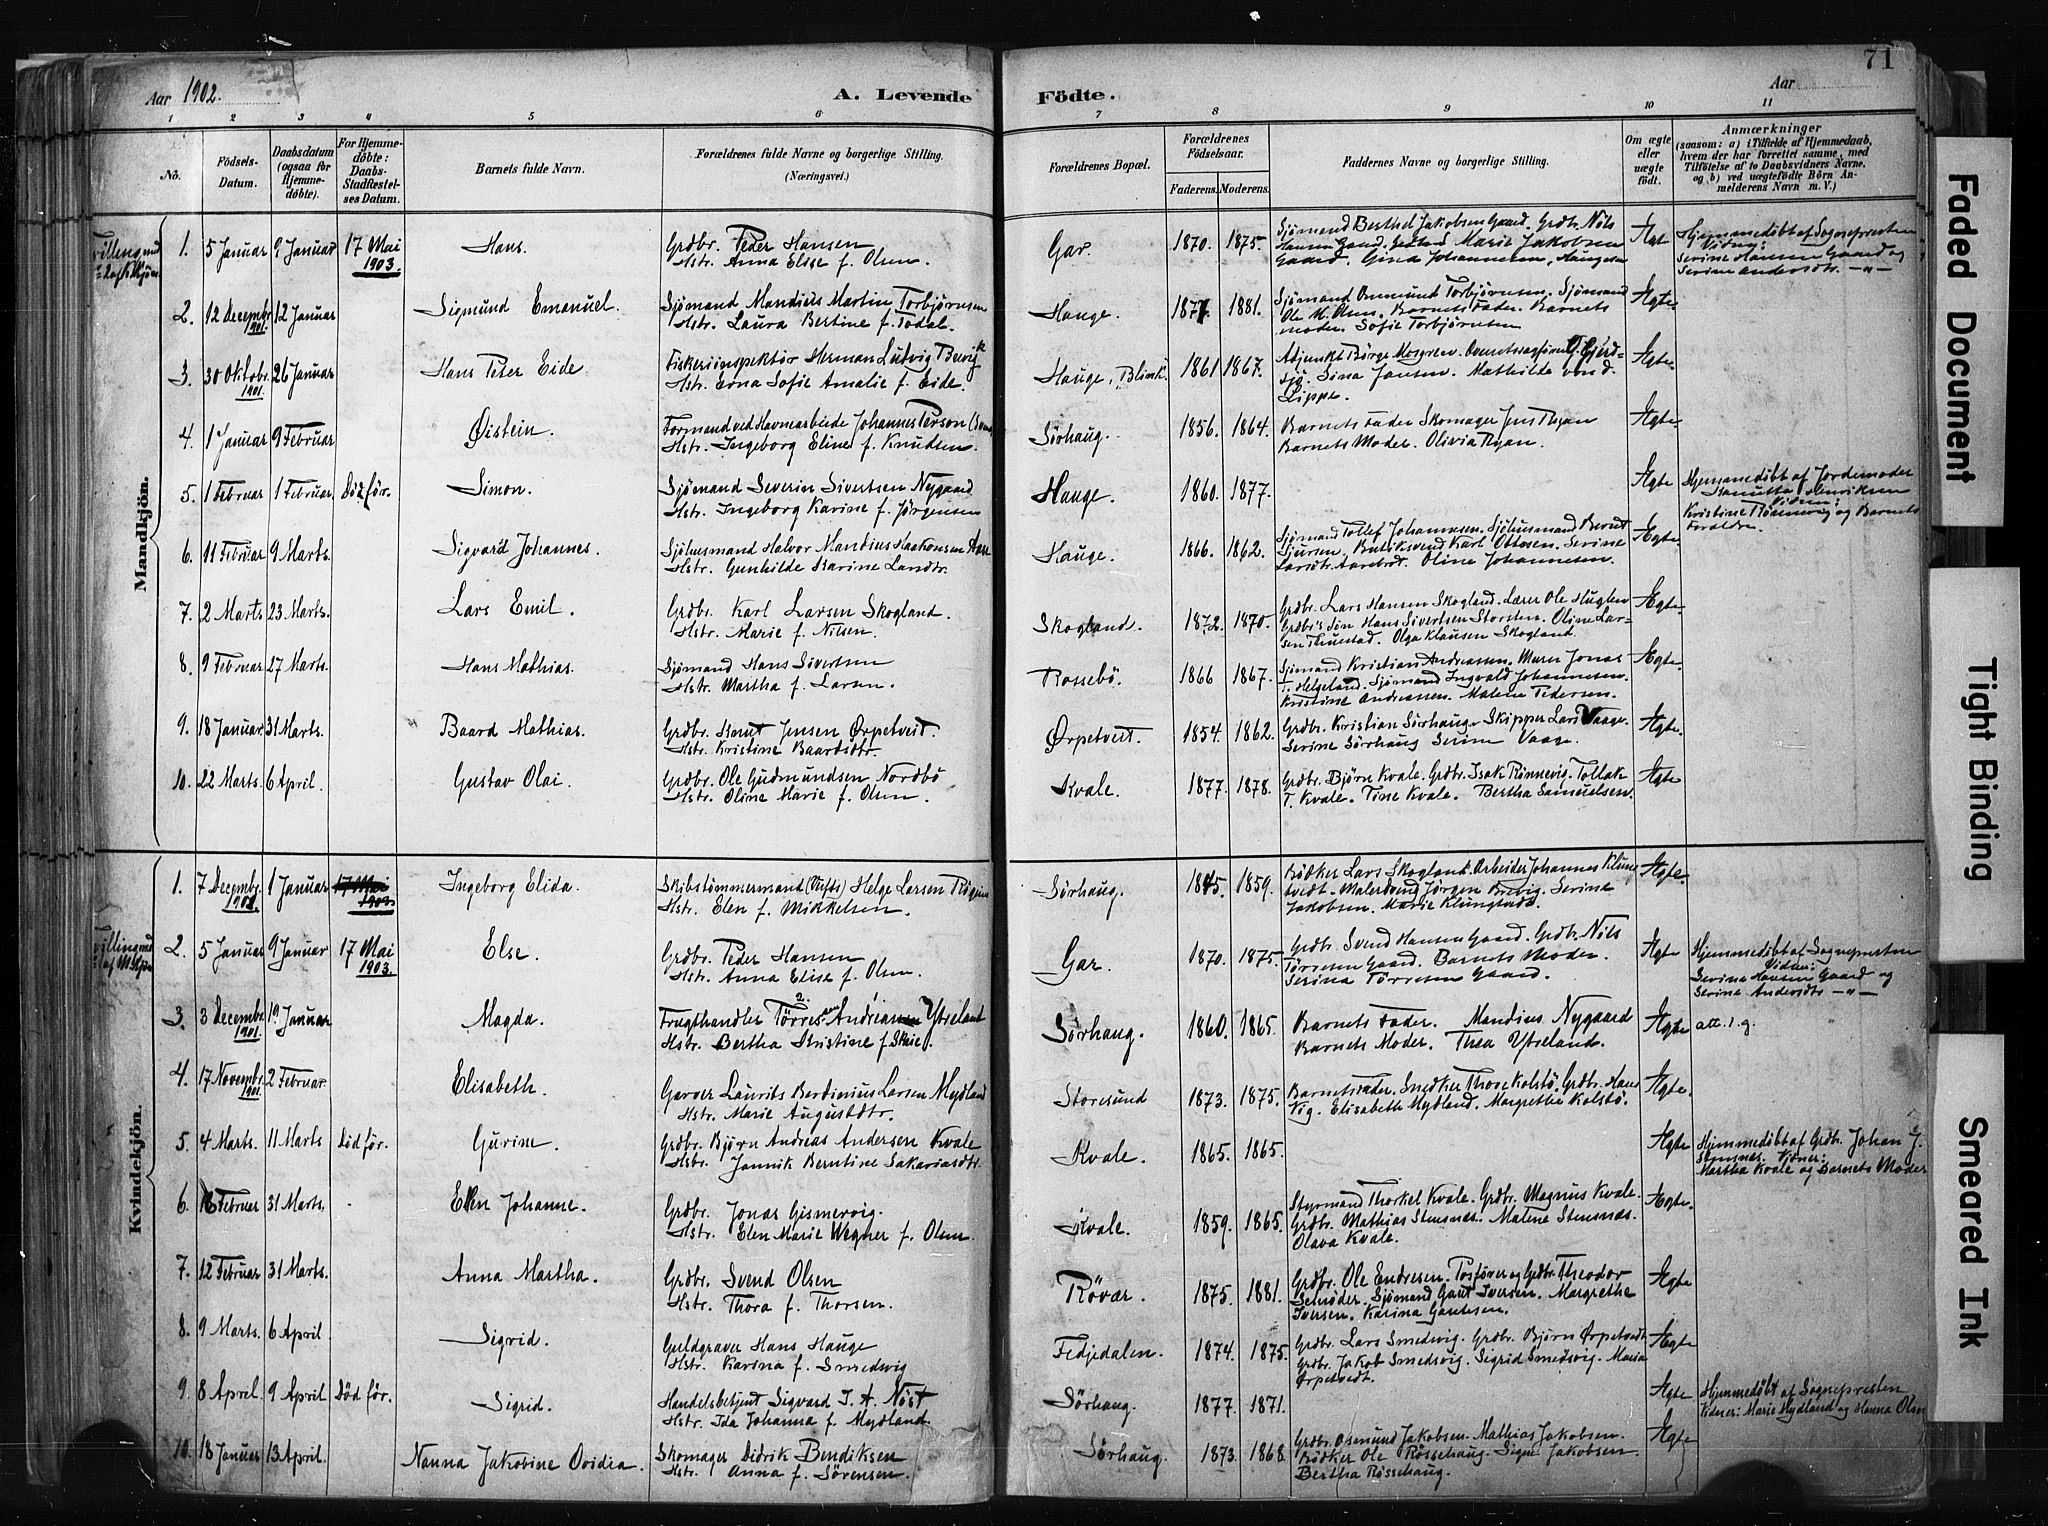 71
Aar 1902.
A. Levende Födte.
Aar
1 2 3 4 5 6 7 8 9 10 11
No.
Födsels-Datum.
Daabsdatum (ogsaa for Hjemme-döbte).
For Hjemme-döbte: Daabs-Stadfæstel-ses Datum.
Barnets fulde Navn.
Forældrenes fulde Navne og borgerlige Stilling. (Næringsvei.)
Forældrenes Bopæl.
Forældrenes Födselsaar.
Faderens. Moderens.
Faddernes Navne og borgerlige Stilling.
Om ægte eller uægte födt.
Anmærkninger
(saasom: a) i Tilfælde af Hjemmedaab, hvem der har forrettet samme, med Tilföielse af to Daabsvidners Navne. og b) ved uægtefödte Börn An-melderens Navn m. V.)
Mandkjön.
1. 5 Januar 9 Januar 17 Mai 1903. Hans. Grdbr. Peder Hansen
Hstr. Anna Elise f. Olsen. Gar. 1870. 1875. Sjömand Berthel Jakobsen Gaard. Grdb. Nils
Marie Jakobsen
Gaard. Gina Johannesen, Haugesund Ægte Hjemmedøbt af Sognepresten
Vidner:
Serine Hansen Gaard og
Serine Andersdtr. -"-
2. 12 decembr. 1901. 12 Januar Sigmund Emanuel. Sjömand Mandius Martin Torbjørnsen
Hstr. Laura Bertine f. Todal. Hauge. 1877. 1881. Sjömand Ommund Torbjørnsen. Sjömand
Ole M. Olsen. Barnets Fader. Barnets
moder. Sofie Torbjørnsen Ægte.
3. 30 Oktobr. 1901. 26 Januar Hans Peter Eide Fiskeriinspektør Herman Ludvig Buvig
Hstr. Edna Sofie Amalie f. Eide. Hauge, "Blink". 1861 1867. Adjunkt Børge Mosgren. Overretssagfører
Sina Jansen. Mathilde von d.
Lippe. Ægte.
4. 1 Januar 9 Februar Øistein. Formand ved Havnearbeide Johannes Person
Hstr. Ingeborg Eline f. Knudsen. Sørhaug. 1856. 1864. Barnets Fader Skomager Jens Ryan
Barnets Moder. Olivia Ryan. Ægte.
5. 1 Februar 1 Februar. Död før. Simon. Sjömand Severin Sivertsen Nygaard
Hstr. Ingeborg Karine f. Jørgensen Hauge. 1860. 1877. Ægte Hjemmedøbt af Jordemoder
Henriksen
Vidner:
Kristine Rönnevig og Barnets
Forældre.
6. 11 Februar 9 Marts. Sigvard Johannes. Sjöhusmand Halvor Mandius Haakonsen
Hstr. Gunhilde Karine Landtr. Hauge. 1866. 1862. Sjömand Tollef Johannesen. Sjöhusmand Berent
Sjursen. Butiksvend Karl Ottesen. Serine
Larsdtr. Aarebrot. Oline Johannesen. Ægte.
7. 2 Marts. 23 Marts. Lars Emil. Grdbr. Karl Larsen Skogland.
Hstr. Marie f. Nilsen. Skogland. 1872. 1870. Grdbr. Lars Hansen Skogland. Lærer Ole Huglen
Grdbr's Søn Hans Sivertsen Storsten. Oline Lar-
sen Thuestad. Olga Klausen Skogland. Ægte.
8. 9 Februar 27 Marts. Hans Mathias. Sjömand Hans Sivertsen
Hstr. Martha f. Larsen. Rossebö. 1866 1867. Sjömand Kristian Andreassen. Murer Jonas
T. Helgeland. Sjömand Ingvald Johannesen.
Kristine Andreassen. Malene Pedersen. Ægte.
9. 18 Januar. 31 Marts. Baard Mathias. Grdbr. Knut Jensen Ørpetveit.
Hstr. Kristine Baardsdtr. Ørpetveit. 1854. 1862. Grdbr. Kristian Sørhaug. Skipper Lars Vaage.
Serine Sørhaug Serine Vaage. Ægte.
10. 22 Marts. 6 April. Gustav Olai. Grdbr. Ole Gudmundsen Nordbö
Hstr. Oline Marie f. Olsen. Kvale. 1877. 1878. Grdbr. Bjørn Kvale. Grdbr. Isak Rönnevig. Tollak
T. Kvale. Tine Kvale. Bertha Samuelsen. Ægte
Kvindekjön.
1. 7 Decembr. 1901. 1 Januar 17 Mai 1903 Ingeborg Elida. Skibstömmermand (Skifts) Helge Larsen
Hstr. Elen f. Mikkelsen. Sørhaug. 1845. 1859. Bödker Lars Skogland. Arbeider Johannes Klung
tvedt. Malersvend Jörgen Buvig. Serine
Jakobsen. Marie Klungtvedt. Ægte.
2. 5 Januar 9 Januar 17 Mai 1903. Else. Grdbr. Peder Hansen
Hstr. Anna Elise f. Olsen. Gar. 1870. 1875. Grdbr. Svend Hansen Gaard. Grdb. Nils
Törresen Gaard. Barnets Moder.
Serina Törresen Gaard. Ægte Hjemmedøbt af Sognepresten
Vidner:
Serine Hansen Gaard og
Serine Andersdtr. -"-
3. 3 Decembr. 1901. 19 Januar Magda. Frugthandler Törres Andreas Ytreland
Hstr. Bertha Kristine f. Skeie. Sørhaug. 1860. 1865. Barnets Fader. Mandius Nygaard
Barnets Moder. Thea Ytreland. Ægte att. 1. g.
4. 17 Novembr. 1901. 2 Februar. Elisabeth. Garver Laurits Berdinius Larsen Mydland
Hstr. Marie Augustdtr. Storesund 1873. 1875. Barnets Fader. Smedker Thore Kolstö. Grdbr. Hans
Vig. Elisabeth Mydland. Margrethe Kolstö. Ægte.
5. 4 Marts. 11 Marts Död før. Gurine. Grdbr. Bjørn Andreas Andersen Kvale
Hstr. Jannik Berntine Sakariasdtr. Kvale. 1865. 1865. Ægte Hjemmedøbt af Grdbr. Johan J.
Stemnes. Vidner:
Martha Kvale og Barnets Moder
6. 16 Februar 31 Marts. Elen Johanne. Grdbr. Jonas Gismervig.
Hstr. Elen Marie Wegner f. Olsen. Kvale. 1859. 1865. Styrmand Thorkel Kvale. Grdbr. Magnus Kvale.
Grdbr. Mathias Stensnæs. Malene Stensnæs.
Olava Kvale. Ægte.
7. 12 Februar 31 Marts. Anna Martha. Grdbr. Svend Olsen
Hstr. Thora f. Thorsen. Røvær. 1875. 1881. Grdbr. Ole Endresen. Postfører og Grdbr. Theodor
Schröder. Sjömand Gaut Iversen. Margrethe
Iversen. Karina Gautesen. Ægte
8. 9 Marts. 6 April Sigrid. Guldgraver Hans Hauge
Hstr. Karina f. Smedsvig Fedjedalen. 1874. 1875. Grdbr. Lars Smedsvig. Grdbr. Bjørn Ørpetvedt.
Grdbr. Jakob Smedsvig. Sigrid Smedsvig. Maria
Ørpetvedt. Ægte
9. 8 April. 9 April Död før. Sigrid. Handelsbetjent Sigvard J. A. Nöst
Hstr. Ida Johanna f. Mydland Sørhaug. 1877. 1871. Ægte Hjemmedøbt af Sognepresten
Vidner: Marie Mydland og Hanna Olsen
10. 18 Januar 13 April. Nanna Jakobine Ovidia. Skomager Didrik Bendiksen
Hstr. Anna f. Sörensen. Sørhaug. 1873. 1868. Grdbr. Osmund Jakobsen. Mathias Jakobsen.
Bödker Ole Røssehaug. Signe Jakobsen.
Bertha Røssehaug. Ægte
Faded Document
Tight Binding
Smeared Ink